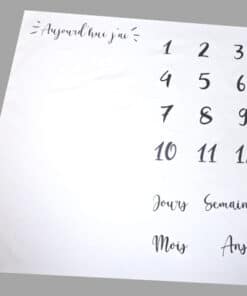 Aujourd'hui j'ai
1 2 3
4 5 6
7 8 9
10 11 1
Jours Semain
Mois Ans